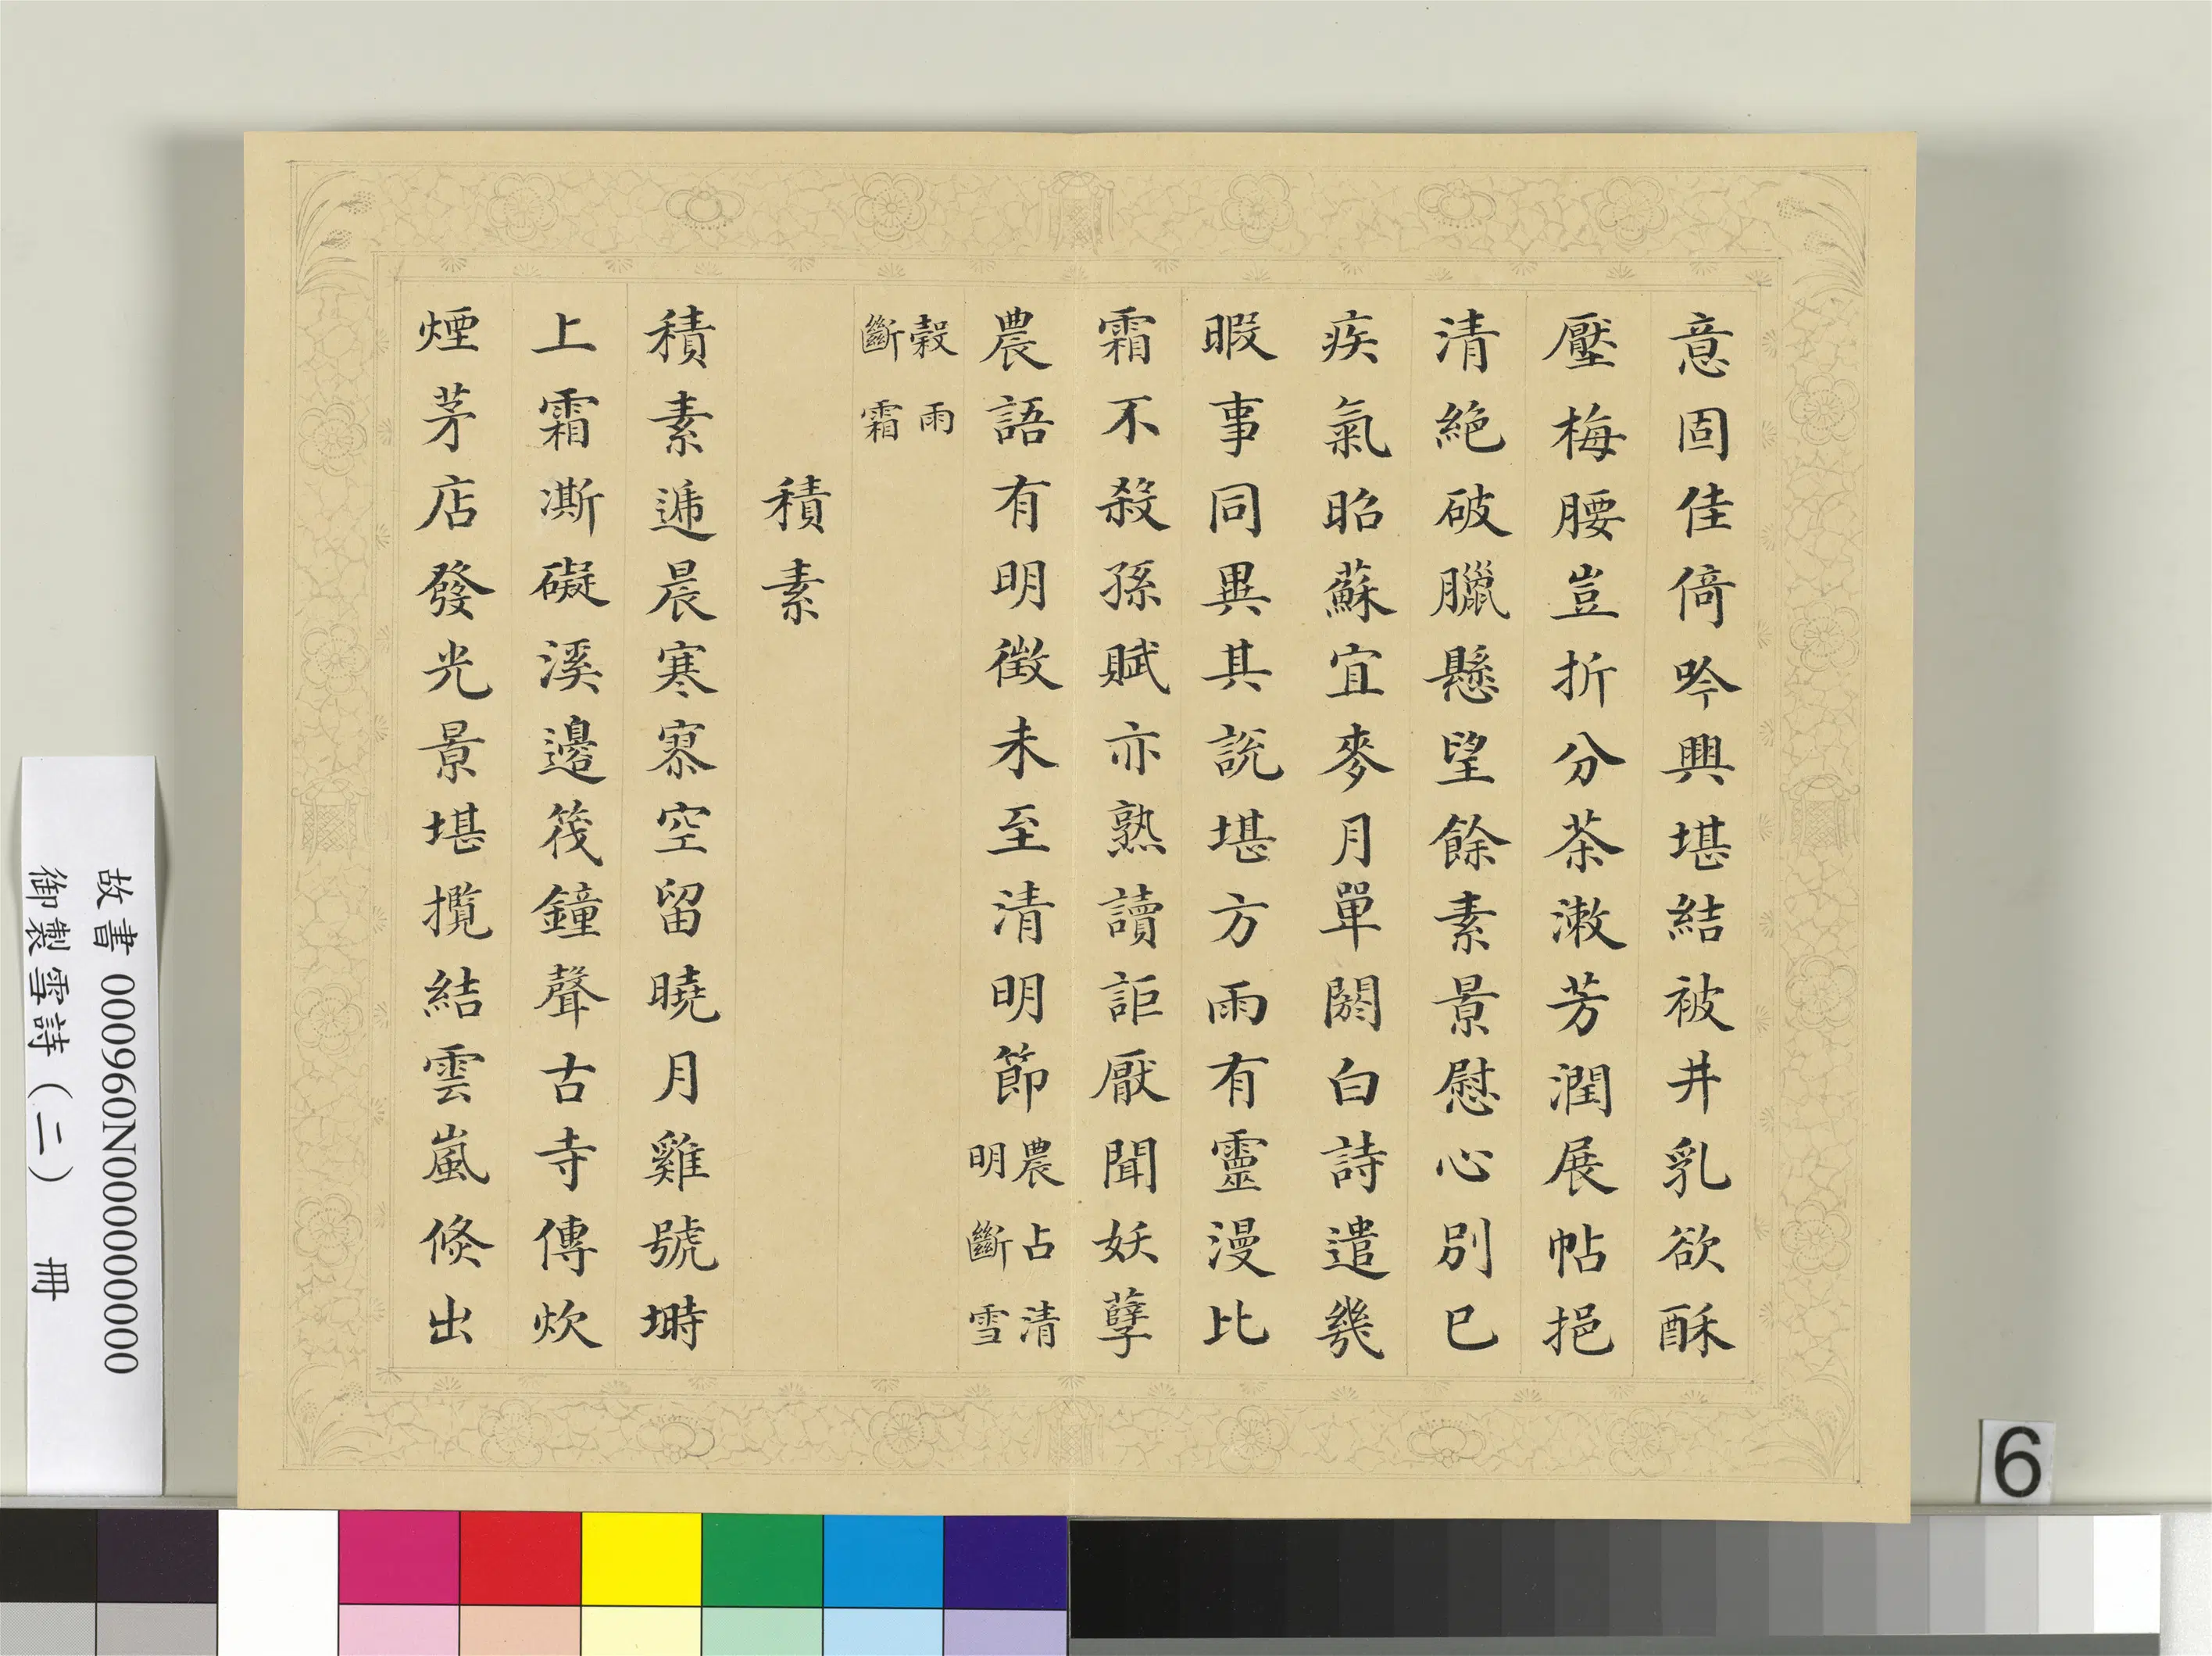 意固佳倚吟興堪結被井乳欲酥
壓梅腰豈折分茶漱芳潤展帖挹
清絶破臘懸望餘素景慰心別巳
疾氣昭蘇宜麥月單閼白詩遣幾
暇事同異其說堪方雨有靈漫比
霜不殺孫賦亦熟讀詎厭聞妖孽
農語有明徴未至清明節農占清
明斷雪
穀雨
斷霜
積素
積素遞晨寒寡空留曉月雞號塒
上霜澌礙溪邊筏鐘聲古寺傳炊
煙茅店發光景堪攬結雲嵐倐出
故書 000960N000000000
御製雪詩(二) 冊
6